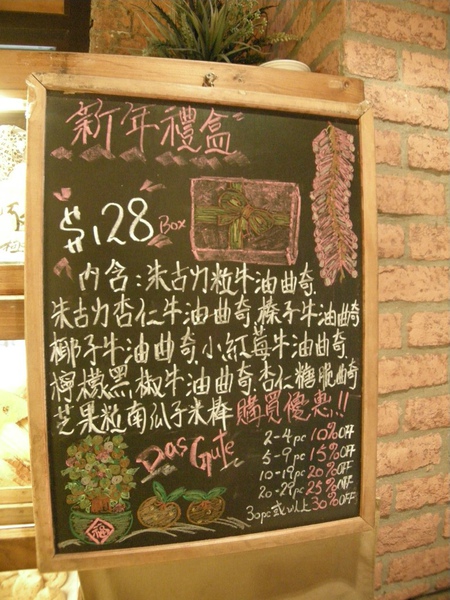 新年禮盒
$128 Box
內含:朱古力粒牛油曲奇.
朱古力杏仁牛油曲奇.榛子牛油曲奇
椰子牛油曲奇.小紅莓牛油曲奇.
檸檬黑椒牛油曲奇.杏仁糖脆曲奇
芝果粒南瓜子米棒 購買優惠!!
Das Gute
2-4pc 10%OFF
5-9pc 15%OFF
10-19pc 20%OFF
20-29pc 25%OFF
30pc或以上30%OFF
福